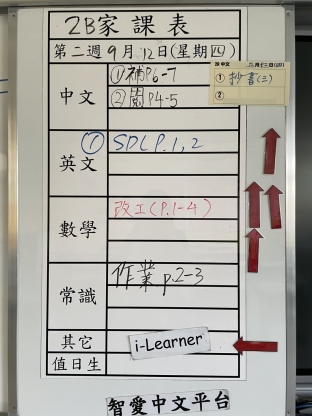 2B家課表
第二週9月12日(星期四)
中文
①補P6-7
②閱P4-5
中文
①抄書(三)
②
英文
① SDL P.1,2
數學
改工(P.1-4)
常識
作業 p.2-3
其它
i-Learner
值日生
智愛中文平台